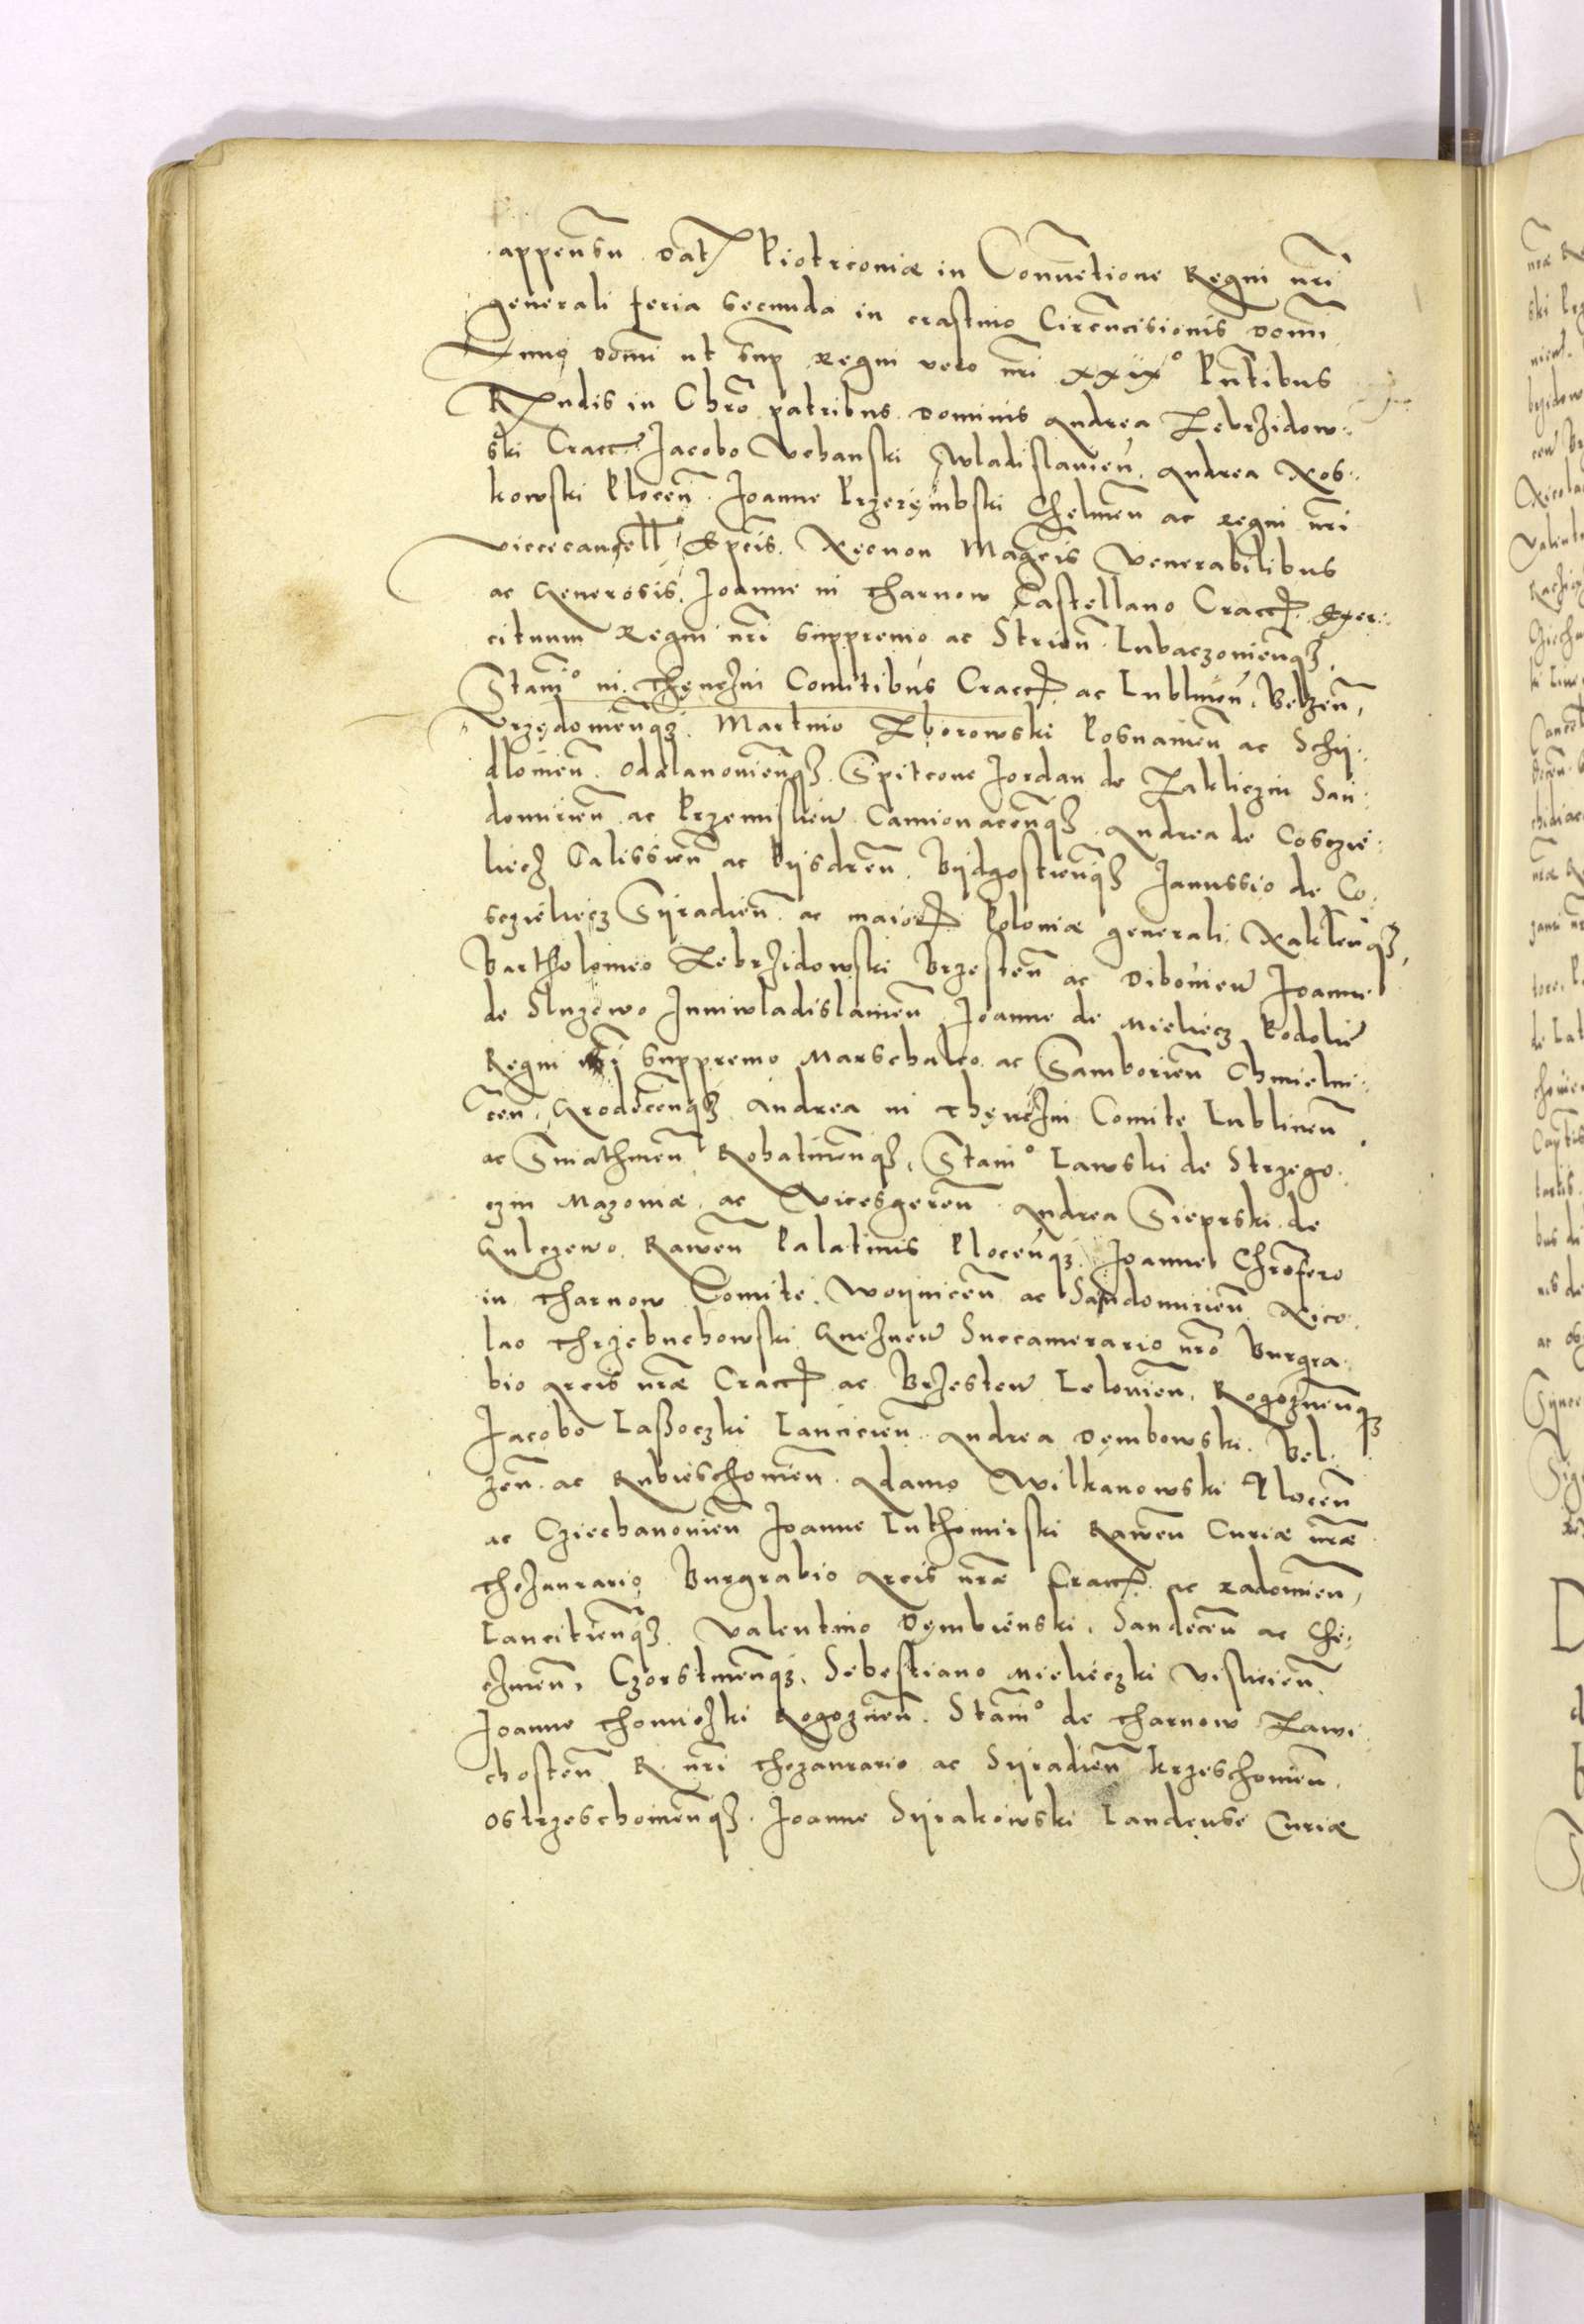 appensum Dat. Piotrcoviæ in Conuētione Regni nr̄i
generali feria secunda in crastino Circūcisionis domī
Anno domī ut sup̄ regni vero nr̄i xxiix° Pn̄tibus
Rx̄ndis in Chrō patribus dominis Andrea Zebrzidow⸗
ski Cracc̄. Jacobo Vchanski Wladislauień. Andrea Nos⸗
kowski Plocen̄. Joanne Przerẹmbski Chelmen̄ ac regni nr̄i
vicecancell. Ep̄is. Necnon Mag̅cis Venerabilibus
ac Generosis, Joanne in Tharnow Castellano Cracc̄. Exer⸗
cituum Regni nr̄i suppremo ac Strien̄ Lubaczouien̄qȝ
Stanī° in Thẹnczin Comitibus Cracc̄. ac Lublineń, Belzen̄,
Vrzẹdouien̄qȝ. Martino Zborowski Posnanien̄ ac Schij⸗
dlouien̄. Odalanouien̄qȝ. Spitcone Jordan de Zakliczin San⸗
domirien̄. ac Przemislień Camionacen̄qȝ. Andrea de Cosczie⸗
liecz Calissien̄ ac Pijsdren̄. Bijdgostien̄qȝ Janussio de Co⸗
sczieliecz Sijradien̄. ac maior. Poloniæ generali. Naklen̄qȝ,
Bartholomeo Zebrzidowski Brzesten̄ ac Dibouień Joanne
de Sluzewo Juniwladislauien̄. Joanne de Mieliecz Podolie
Regni nr̄i suppremo Marschalco ac Samborien̄ Chmielni⸗
cen̄, Grodecen̄qȝ Andrea in Thẹnczin Comite Lublinen̄
ac Sniathinen̄ Rohatinen̄qȝ, Stani° Lawski de Strzego⸗
czin Mazouiæ ac Vicesgeren̄ Andrea Sieprski de
Gulczewo Rawen̄ Palatinis Plocen̄qȝ. Joanne Chrōfero
in Tharnow Comite. Woijnicen̄ ac Sandomirien̄ Nico⸗
lao Thrzebuchowski Gneznen̄ Succamerario nrō Burgra⸗
bio arcis nræ Cracc̄. ac Brzesten̄ Lelouien̄. Rogoznen̄qȝ
Jacobo Laßoczki Lancicien̄ Andrea Dẹmbowski. Bel⸗
zen̄. ac Rubieschouien̄. Adamo Wilkanowski Plocen̄
ac Cziechanouien̄ Joanne Luthomirski Rawen̄ Curiæ nræ
Thezaurario Burgrabio arcis nræ Cracc̄. ac radomien̄,
Lancitien̄qȝ. Valentino Dẹmbienski. Sandecen̄ ac Che⸗
czinen̄. Czorstinen̄qȝ. Sebestiano Mielieczki Vislicien̄
Joanne Thomiczki Rogoznen̄. Stanī° de Tharnow Zawi⸗
chosten̄ R. nr̄i Thezaurario ac Sijradien̄ Krzeschouien̄.
Ostrzeschouien̄qȝ. Joanne Sijrakowski Landense Curiæ